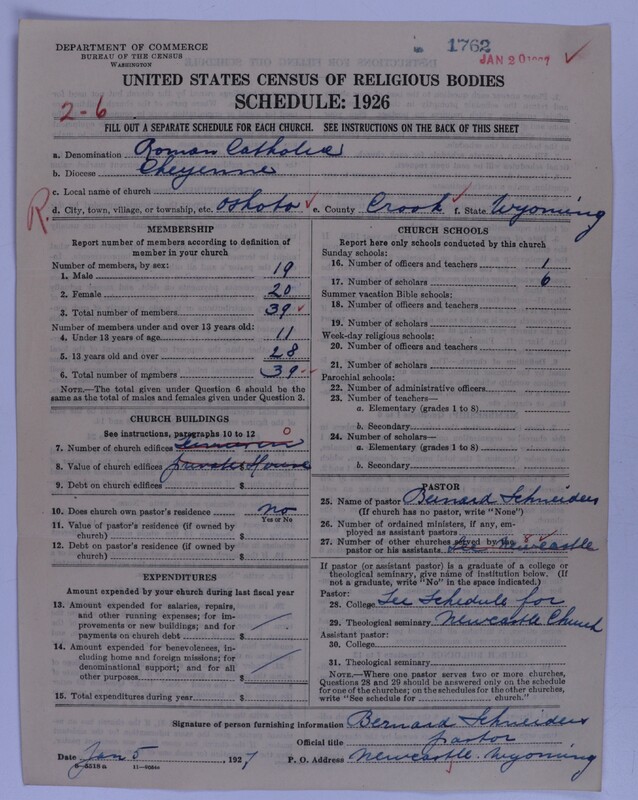 1762
JAN 20 1927
DEPARTMENT OF COMMERCE
BUREAU OF THE CENSUS
WASHINGTON
UNITED STATES CENSUS OF RELIGIOUS BODIES
SCHEDULE: 1926
2-6
FILL OUT A SEPARATE SCHEDULE FOR EACH CHURCH. SEE INSTRUCTIONS ON THE BACK OF THIS SHEET
a. Denomination Roman Catholic
b. Diocese Cheyenne
c. Local name of church
R. d. City, town, village, or township, etc. Oshoto e. County Crook f. State Wyoming
MEMBERSHIP
Report number of members according to definition of
member in your church
Number of members, by sex:
1. Male 19
2. Female 20
3. Total number of members 39
Number of members under and over 13 years old:
4. Under 13 years of age 11
5. 13 years old and over 28
6. Total number of members 39
NOTE.—The total given under Question 6 should be
the same as the total of males and females given under Question 3.
CHURCH BUILDINGS
See instructions, paragraphs 10 to 12
7. Number of church edifices 0
8. Value of church edifices private House
9. Debt on church edifices $
10. Does church own pastor's residence no
Yes or No
11. Value of pastor's residence (if owned by
church) $
12. Debt on pastor's residence (if owned by
church) $
EXPENDITURES
Amount expended by your church during last fiscal year
13. Amount expended for salaries, repairs,
and other running expenses; for im-
provements or new buildings; and for
payments on church debt $
14. Amount expended for benevolences, in-
cluding home and foreign missions; for
denominational support; and for all
other purposes $
15. Total expenditures during year $
CHURCH SCHOOLS
Report here only schools conducted by this church
Sunday schools:
16. Number of officers and teachers 1
17. Number of scholars 6
Summer vacation Bible schools:
18. Number of officers and teachers
19. Number of scholars
Week-day religious schools:
20. Number of officers and teachers
21. Number of scholars
Parochial schools:
22. Number of administrative officers
23. Number of teachers—
a. Elementary (grades 1 to 8)
b. Secondary
24. Number of scholars—
a. Elementary (grades 1 to 8)
b. Secondary
PASTOR
25. Name of pastor Bernard Schneiders
(If church has no pastor, write "None")
26. Number of ordained ministers, if any, em-
ployed as assistant pastors
27. Number of other churches served by the
pastor or his assistants See Newcastle
If pastor (or assistant pastor) is a graduate of a college or
theological seminary, give name of institution below. (If
not a graduate, write "No" in the space indicated.)
Pastor:
28. College See Schedule for
29. Theological seminary Newcastle Church
Assistant pastor:
30. College
31. Theological seminary
NOTE.—Where one pastor serves two or more churches,
Questions 28 and 29 should be answered only on the schedule
for one of the churches; on the schedules for the other churches,
write "See schedule for church."
Signature of person furnishing information Bernard Schneiders
Official title pastor
Date Jan 5, 1927 P. O. Address Newcastle Wyoming
8-5518a 11-9086a